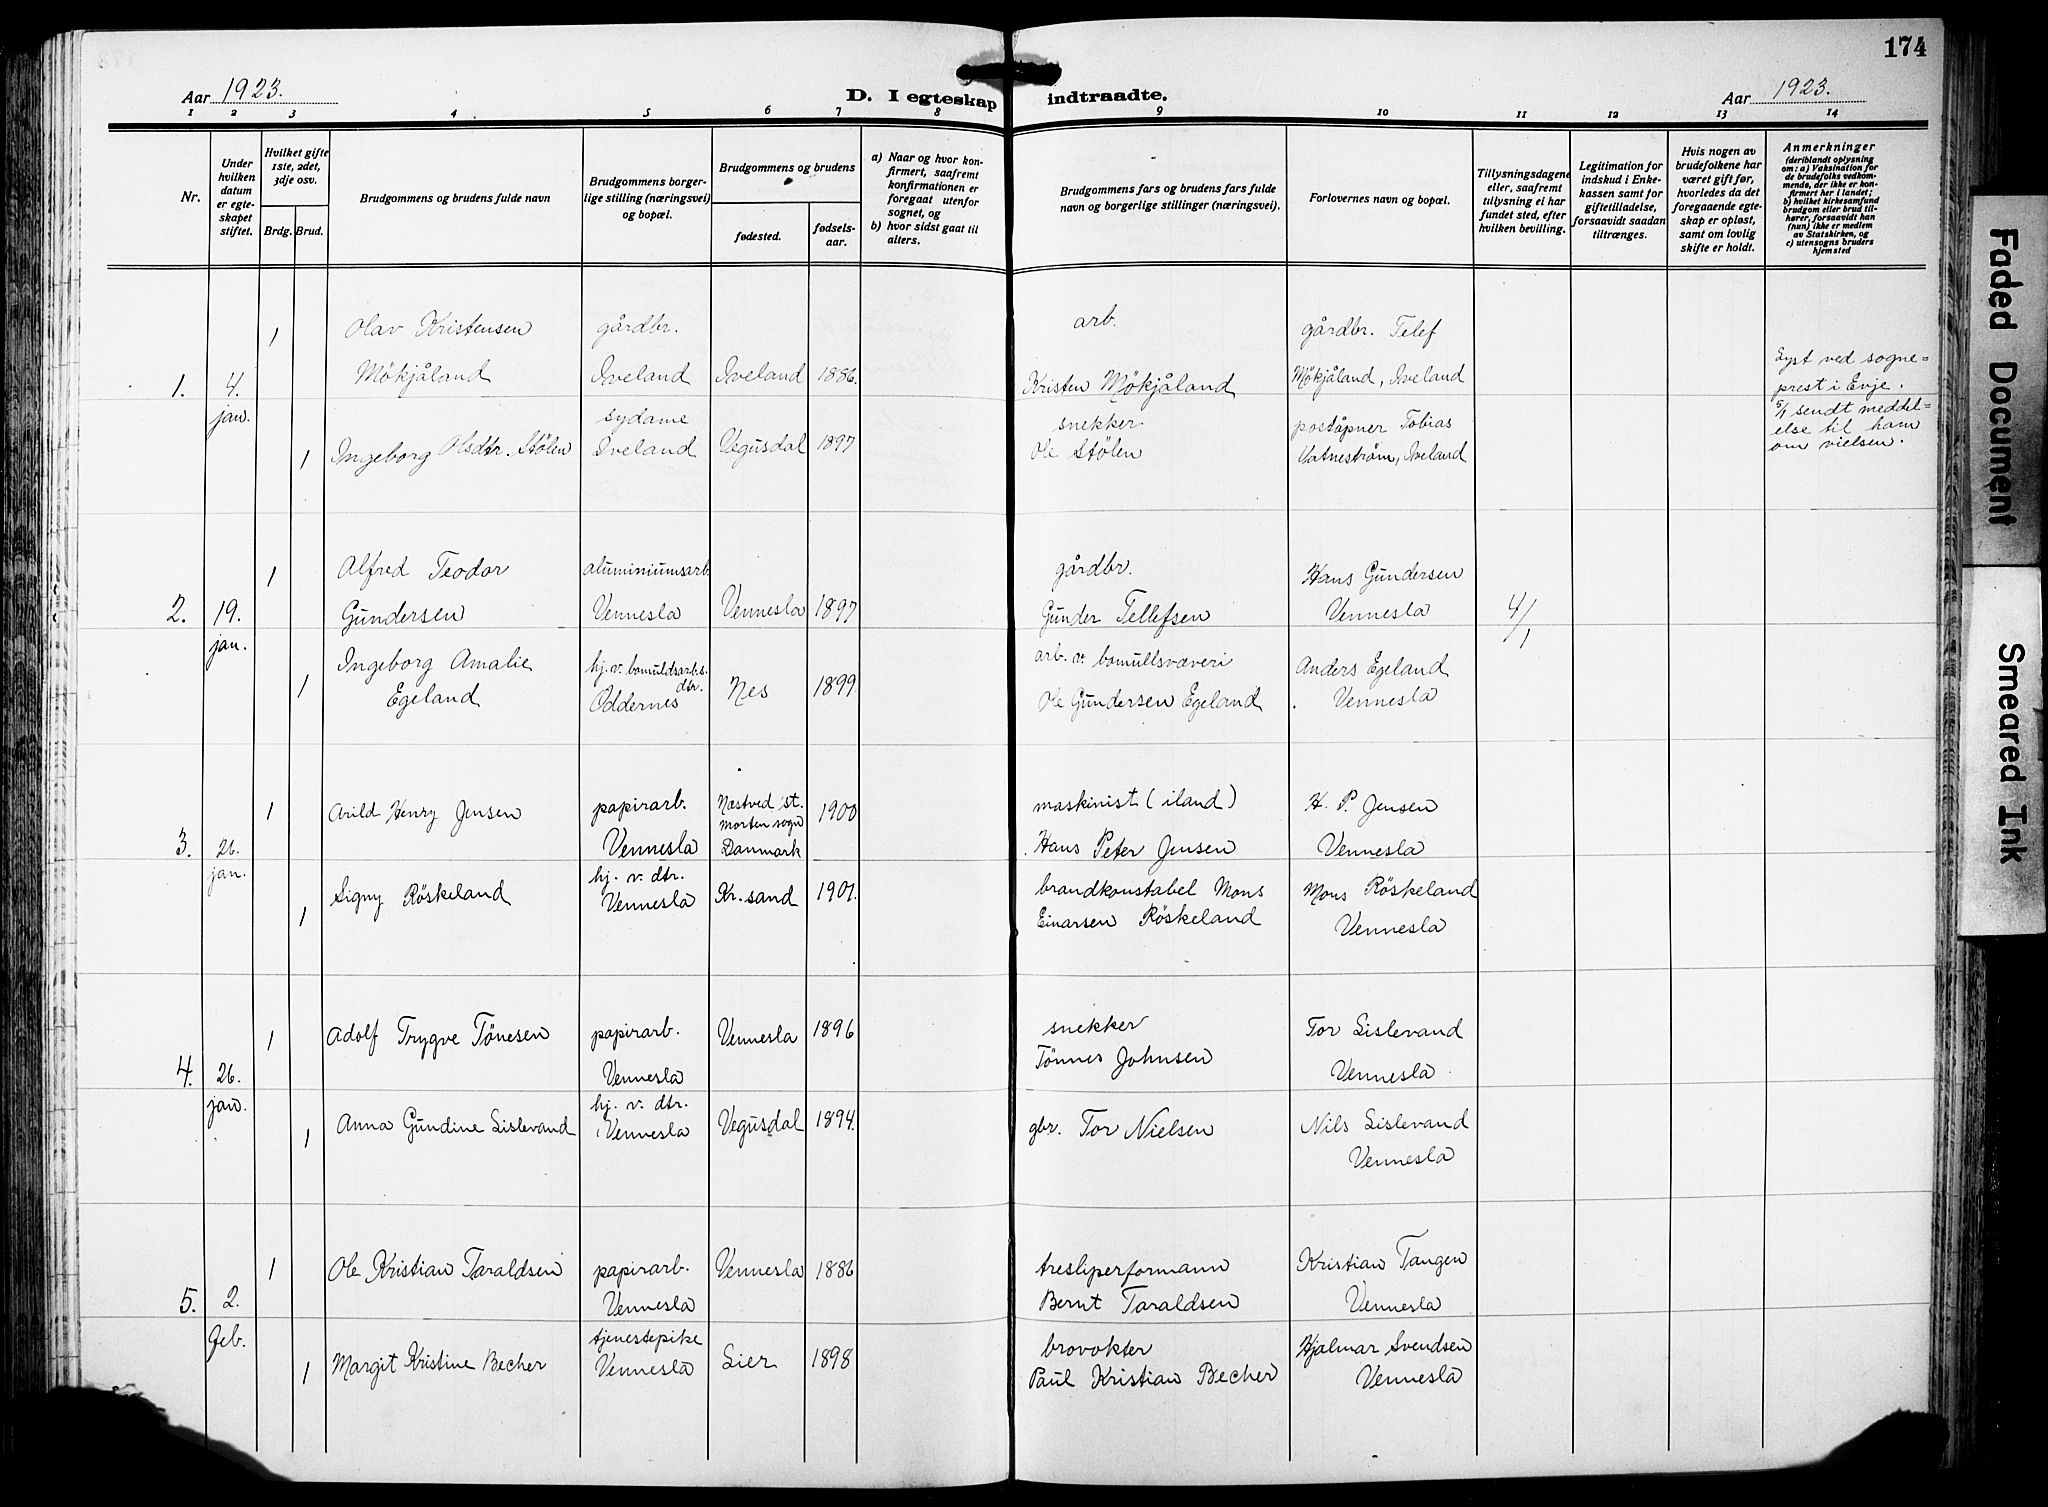 174
Aar 1923.
D. I egteskap indtraadte.
Aar 1923.
1 2 3 4 5 6 7 8 9 10 11 12 13 14
Nr.
Under
hvilken
datum
er egte-
skapet
stiftet.
Hvilket gifte
1ste, 2det,
3dje osv.
Brdg. Brud.
Brudgommens og brudens fulde navn
Brudgommens borger-
lige stilling (næringsvei)
og bopæl.
Brudgommens og brudens
fødested.
fødsels-
aar.
a) Naar og hvor kon-
firmert, saafremt
konfirmationen er
foregaat utenfor
sognet, og
b) hvor sidst gaat til
alters.
Brudgommens fars og brudens fars fulde
navn og borgerlige stillinger (næringsvei).
Forlovernes navn og bopæl.
Tillysningsdagene
eller, saafremt
tillysning ei har
fundet sted, efter
hvilken bevilling.
Legitimation for
indskud i Enke-
kassen samt for
giftetilladelse,
forsaavidt saadan
tiltrænges.
Hvis nogen av
brudefolkene har
været gift før,
hvorledes da det
foregaaende egte-
skap er opløst,
samt om lovlig
skifte er holdt.
Anmerkninger
(deriblandt oplysning
om: a) Vaksination for
de brudefolks vedkom-
mende, der ikke er kon-
firmert her i landet;
b) hvilket kirkesamfund
brudgom eller brud til-
hører, forsaavidt han
(hun) ikke er medlem
av Statskirken, og
c) utensogns bruders
hjemsted
1.
4.
jan.
1
Olav Kristensen
Mökjåland
gårdbr.
Iveland
Iveland
1886.
arb.
Kristen Mökjåland
gårdbr. Telef
Mökjåland, Iveland
1
Ingeborg Olsdtr. Stölen
sydame
Iveland
Vegusdal
1897
snekker
Ole Stölen
poståpner Tobias
Vatneström, Iveland
Lyst ved sogne=
prest i Evje.
5/1 sendt meddel=
else til ham
om vielsen.
2.
19.
jan.
1
Alfred Teodor
Gundersen
aluminiumsarb.
Vennesla
Vennesla
1897
gårdbr.
Gunder Tellefsen
Hans Gundersen
Vennesla
4/1
1
Ingeborg Amalie
Egeland
hj. v. bomuldsarb.s.
dtr.
Oddernes
Nes
1899.
arb. v. bomullsvæveri
Ole Gundersen Egeland
Anders Egeland
Vennesla
3.
26.
jan.
1
Arild Henry Jensen
papirarb.
Vennesla
Næstved st.
Morten sogn
Danmark
1900
maskinist (iland)
Hans Peter Jensen
H. P. Jensen
Vennesla
1
Signy Röskeland
hj. v. dtr.
Vennesla
Kr. sand
1901.
brandkonstabel Mons
Einarsen Röskeland
Mons Röskeland
Vennesla
4.
26.
jan.
1
Adolf Trygve Tönesen
papirarb.
Vennesla
Vennesla
1896
snekker
Tönnes Johnsen
Tor Lislevand
Vennesla
1
Anna Gundine Lislevand
hj. v. dtr.
Vennesla
Vegusdal
1894.
gbr. Tor Nielsen
Nils Lislevand
Vennesla
5.
2.
feb.
1
Ole Kristian Taraldsen
papirarb.
Vennesla
Vennesla
1886
tresliperformann
Bernt Taraldsen
Kristian Tangen
Vennesla
1
Margit Kristine Becher
tjenestepike
Vennesla
Lier
1898
brovokter
Paul Kristian Becher
Hjalmar Svendsen
Vennesla
Faded Document
Smeared Ink